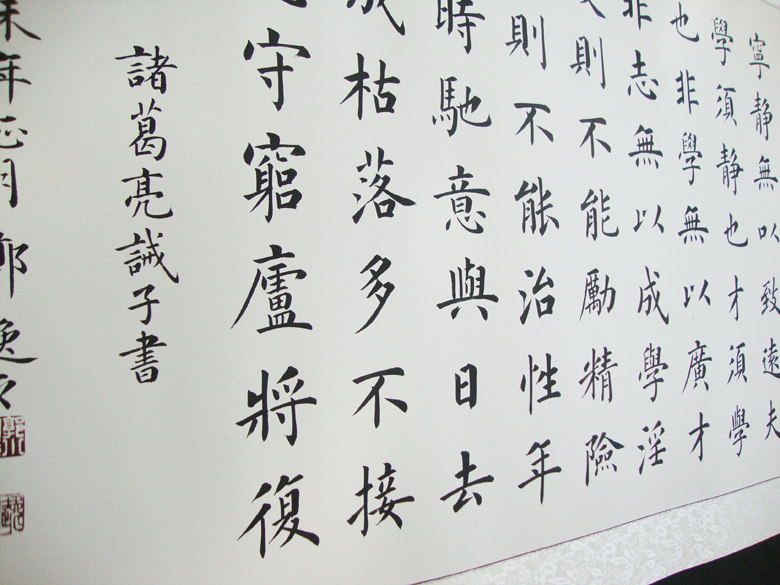 寧静無以致遠夫
學須静也才須學
也非學無以廣才
非志無以成學淫
則不能勵精險
則不能治性年
時馳意與日去
成枯落多不接
守窮廬將復
諸葛亮誡子書
未年正月